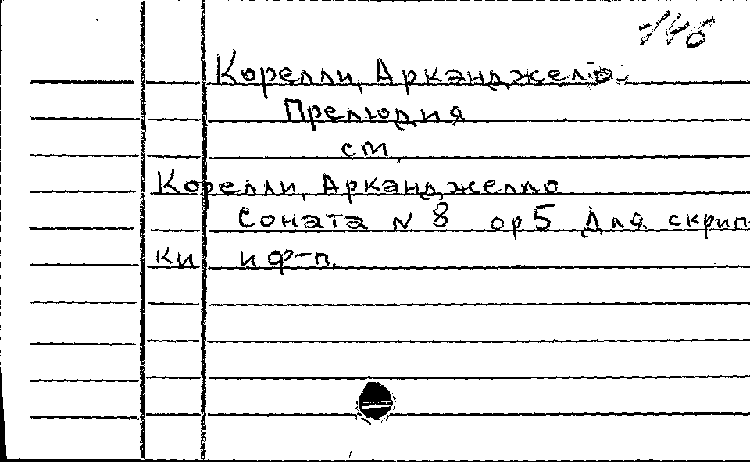 Корелли, Арканджело.
Прелюдия
см.
Корелли, Арканджелло
Соната N 8 ор 5 для скрип-
ки и ф-п.